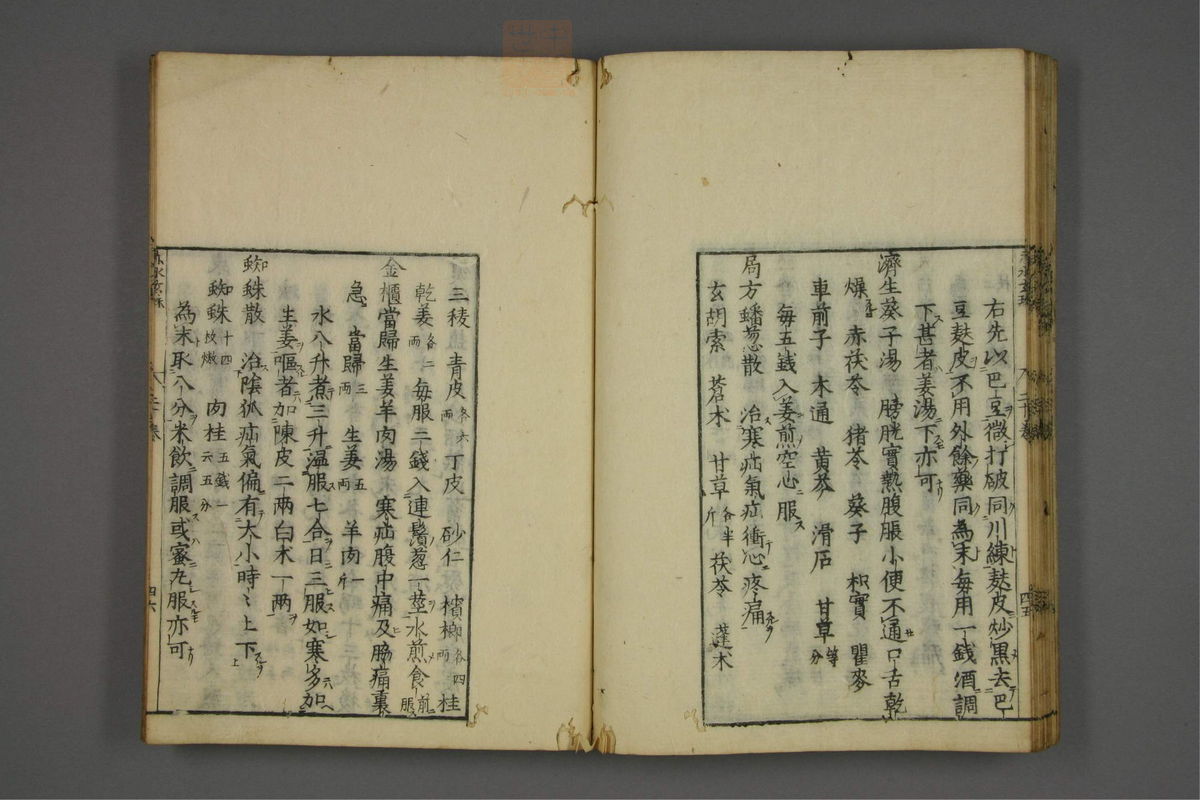 右先以巴豆微打破同川練麩皮炒黒去巴
豆麩皮不用外餘藥同為末毎用一錢酒調
下甚者姜湯下亦可
濟生葵子湯 膀胱實熱腹脹小便不通口舌乾
燥 赤茯苓 猪苓 葵子 枳實 瞿麥
車前子 木通 黄芩 滑石 甘草 等分
毎五錢入姜煎空心服
局方蟠葱散 治寒疝氣疝衝心疼痛
玄胡索 蒼朮 甘草 各半斤 茯苓 蓬朮
四五
三稜 青皮 各六両 丁皮 砂仁 檳榔 各四両 桂
乾姜 各二両 毎服三錢入連鬚葱一莖水煎食前服
金櫃當歸生姜羊肉湯 寒疝腹中痛及脇痛裏
急 當歸 三両 生姜 五両 羊肉 一斤
水八升煮三升温服七合日三服如寒多加
生姜嘔者加陳皮二両白朮一両
蜘蛛散 治陰狐疝氣偏有大小時〻上下
蜘蛛 十四枚燉 肉桂 五錢一云五分
為末取八分米飲調服或蜜丸服亦可
四六